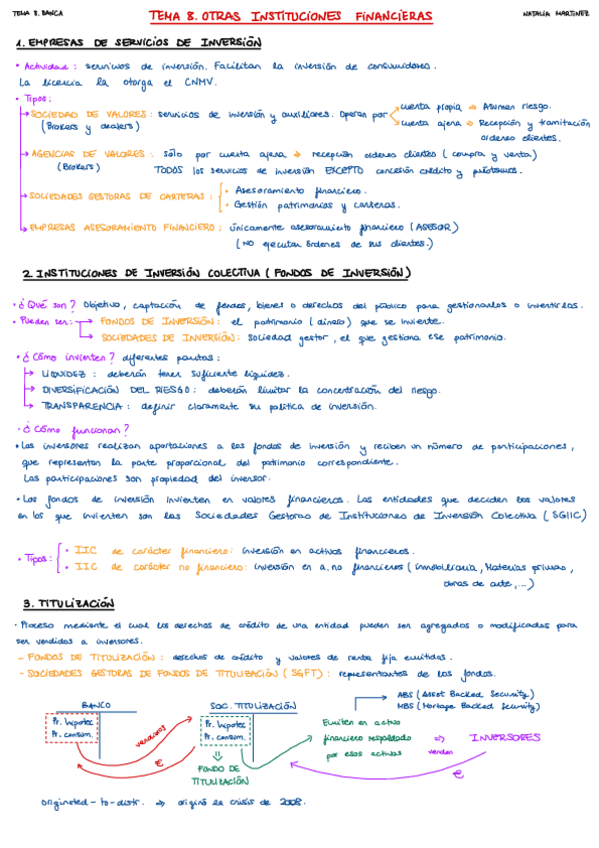 TEMA 8. BANCA
TEMA 8. OTRAS INSTITUCIONES FINANCIERAS
NATALIA MARTINEZ
1. EMPRESAS DE SERVICIOS DE INVERSIÓN
• Actividad: servicios de inversión. Facilitan la inversión de consumidores.
La licencia la otorga el CNMV.
• Tipos:
SOCIEDAD DE VALORES: servicios de inversión y auxiliares. Operan por
cuenta propia → Asumen riesgo.
(Brokers y dealers)
cuenta ajena → Recepción y tramitación
ordenes clientes.
AGENCIAS DE VALORES: sólo por cuenta ajena → recepción ordenes clientes (compra y venta)
(Brokers)
TODOS los servicios de inversión EXCEPTO concesión crédito y préstamos.
SOCIEDADES GESTORAS DE CARTERAS:
• Asesoramiento financiero.
• Gestión patrimonios y carteras.
EMPRESAS ASESORAMIENTO FINANCIERO: únicamente asesoramiento financiero (ASESOR)
(NO ejecutan órdenes de sus clientes.)
2. INSTITUCIONES DE INVERSIÓN COLECTIVA (FONDOS DE INVERSIÓN)
• ¿Qué son? Objetivo, captación de fondos, bienes o derechos del público para gestionarlos o invertirlos.
• Pueden ser: → FONDOS DE INVERSIÓN: el patrimonio (dinero) que se invierte.
SOCIEDADES DE INVERSIÓN: sociedad gestor, el que gestiona ese patrimonio.
• ¿Cómo invierten? diferentes pautas:
LIQUIDEZ: deberán tener suficiente liquidez.
DIVERSIFICACIÓN DEL RIESGO: deberán limitar la concentración del riesgo.
TRANSPARENCIA: definir claramente su política de inversión.
• ¿Cómo funcionan?
• Los inversores realizan aportaciones a los fondos de inversión y reciben un número de participaciones,
que representan la parte proporcional del patrimonio correspondiente.
Las participaciones son propiedad del inversor.
• Los fondos de inversión invierten en valores financieros. Las entidades que deciden los valores
en los que invierten son las Sociedades Gestoras de Instituciones de Inversión Colectiva (SGIIC)
• Tipos:
• IIC de carácter financiero: inversión en activos financieros.
• IIC de carácter no financiero: inversión en a. no financieros (inmobiliaria, Materias primas,
obras de arte,...)
3. TITULIZACIÓN
• Proceso mediante el cual los derechos de crédito de una entidad pueden ser agregados o modificados para
ser vendidos a inversores.
- FONDOS DE TITULIZACIÓN: derechos de crédito y valores de renta fija emitidas.
- SOCIEDADES GESTORAS DE FONDOS DE TITULIZACIÓN (SGFT): representantes de los fondos.
ABS (Asset Backed Security)
MBS (Mortage Backed Security)
BANCO
SOC. TITULIZACIÓN
Pr. hipotec
Pr. consum.
vendemos
€
Pr. hipotec
Pr. consum.
FONDO DE
TITULIZACIÓN
Emiten en activo
financiero respaldado
por esos activos
⇒ INVERSORES
venden
€
originated-to-distr. ⇒ originó la crisis de 2008.